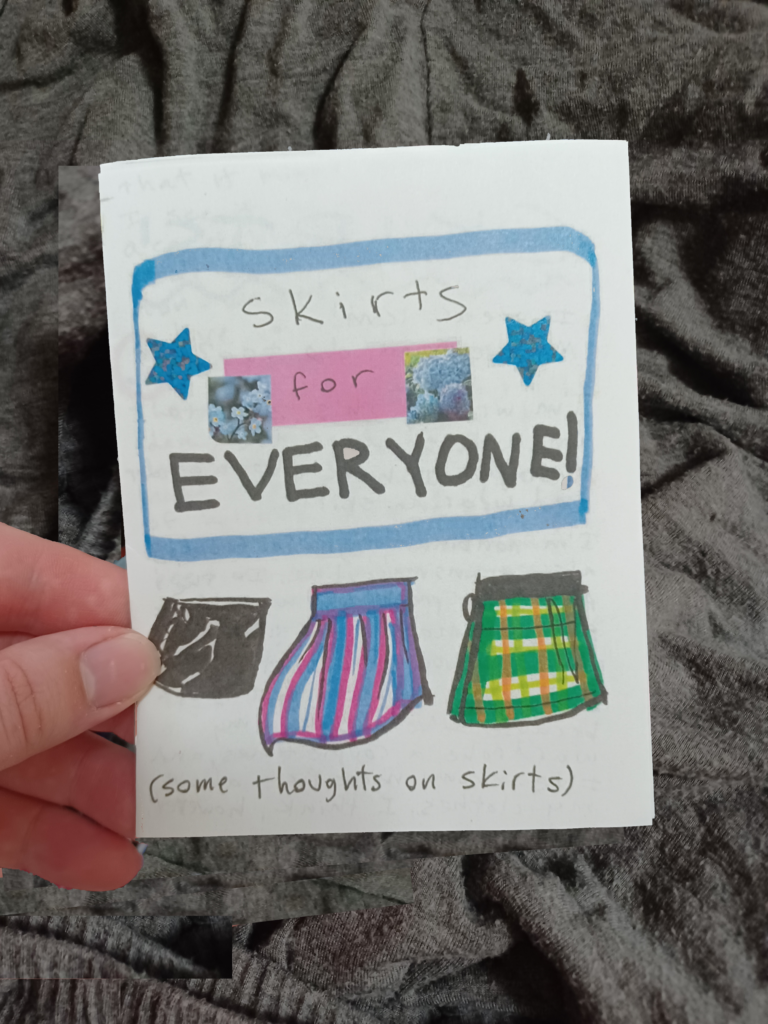 skirts
for
EVERYONE!
(some thoughts on skirts)